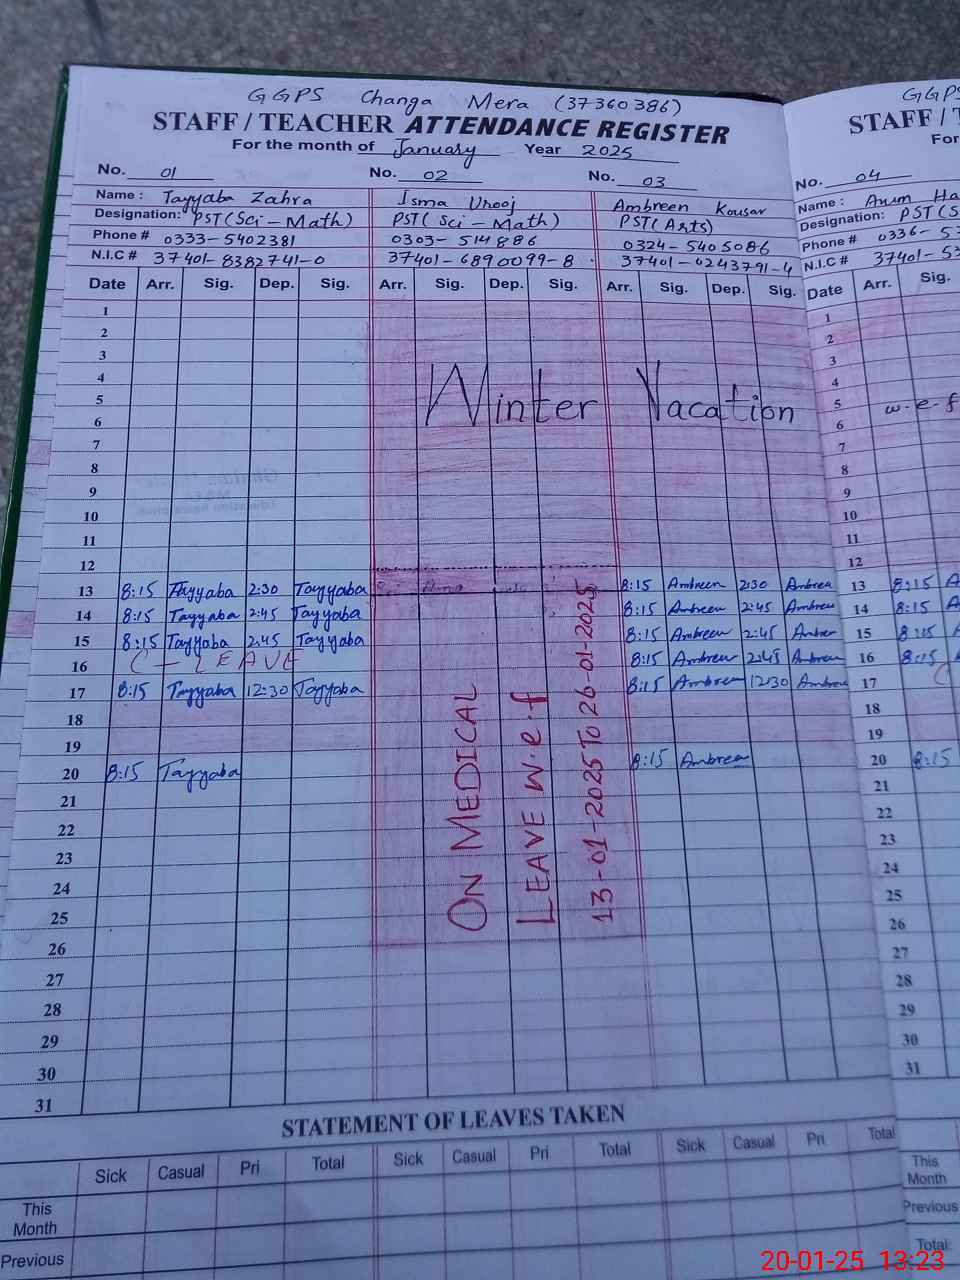 GGPS Changa Mera (37360386) GGPS
STAFF / TEACHER ATTENDANCE REGISTER STAFF /
For the month of January Year 2025 For
No. 01 No. 02 No. 03 No. 04
Name : Tayyaba Zahra Isma Urooj Ambreen Kousar Name :
Designation: PST(Sci-Math) PST(Sci-Math) PST(Arts) Designation: PST(S
Phone # 0333-5402381 0303-514886 0324-5405086 Phone # 0336-5
N.I.C # 37401-8382741-0 37401-6890099-8 37401-0243791-4 N.I.C # 37401-53
Date Arr. Sig. Dep. Sig. Arr. Sig. Dep. Sig. Arr. Sig. Dep. Sig. Date Arr. Sig.
1 1
2 2
3 3
4 4
5 Winter Vacation 5 w.e.f
6 6
7 7
8 8
9 9
10 10
11 11
12 12
13 8:15 Tayyaba 2:30 Tayyaba 8:15 Ambreen 2:30 Ambreen 13 8:15 A
14 8:15 Tayyaba 2:45 Tayyaba 8:15 Ambreen 2:45 Ambreen 14 8:15 A
15 8:15 Tayyaba 2:45 Tayyaba 8:15 Ambreen 2:45 Ambreen 15 8:15
16 C-LEAVE 8:15 Ambreen 2:45 Ambreen 16 8:15
17 8:15 Tayyaba 12:30 Tayyaba 8:15 Ambreen 12:30 Ambreen 17
18 18
19 19
20 8:15 Tayyaba 8:15 Ambreen 20 8:15
21 21
22 22
23 23
24 24
25 25
26 26
27 27
28 28
29 29
30 30
31 31
ON MEDICAL
LEAVE w.e.f
13-01-2025 To 26-01-2025
STATEMENT OF LEAVES TAKEN
Sick Casual Pri Total Sick Casual Pri Total Sick Casual Pri Total
This Month This Month
Previous Previous
Total:
20-01-25 13:23